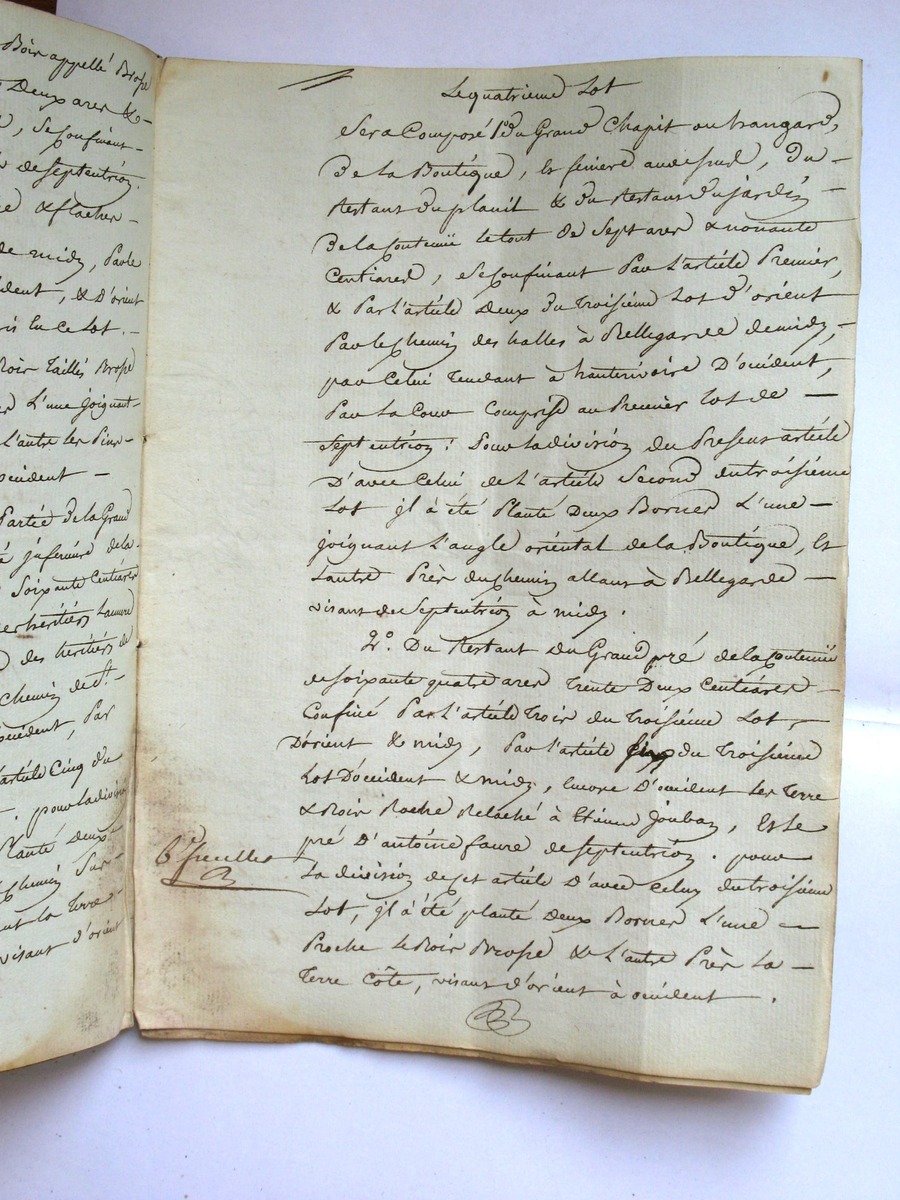 Bois appellé Brosse
Deux ares &
, se Confinant
de septentrion
& flacher
de midy, Par le
ccident, & D'orient
ris En ce Lot.
Bois Taillis Brosse
L'une joignant
L'autre les Pins
occident
Partie de la Grand
inferieure de la
Soixante Centiares
des heritiers
chemin de St
occident, Par
article Cinq du
pour la division
Planté deux
chemin Sur
la Terre
visant d'orient
Le quatrieme Lot
Sera Composé 1º du Grand Chapit ou hangard,
De la Boutique, Et feniere au dessus, Du
Restans du plait & du Restans du jardin
De la Contenüe le tout de Sept ares & nonante
Centiares, se Confinant Par L'article Premier,
& Par L'article Deux du Troisième Lot d'orient
Par le Chemin des halles à Bellegarde de midy,
par Celui Tendant à hauterivoire D'occident,
Par La Cour Comprise au Premier lot de
septentrion: Pour la division du Present article
D'avec Celui de L'article Second du troisième
Lot il à été Planté Deux Bornes L'une
joignant L'angle oriental de la Boutique, Et
Lautre Près du Chemin allant à Bellegarde
visant de Septentrion à midy.
2º. Du Restant du Grand pré de la Contenüe
de soixante quatre ares Trente Deux Centiares
Confiné Par L'article Trois du Troisième Lot,
D'orient & midy, Par l'article du Troisième
Lot D'occident & midy, Encore D'occident Les Terre
& Bois Roche Relaché à Etienne Joubay, Et Le
pré D'antoine faure de septentrion. pour
La division de cet article D'avec Celuy du troisième
Lot, il à été planté Deux Bornes L'une
Proche Le Bois Brosse & L'autre Près La
Terre Côte, visant d'orient à occident.
6e feuillet